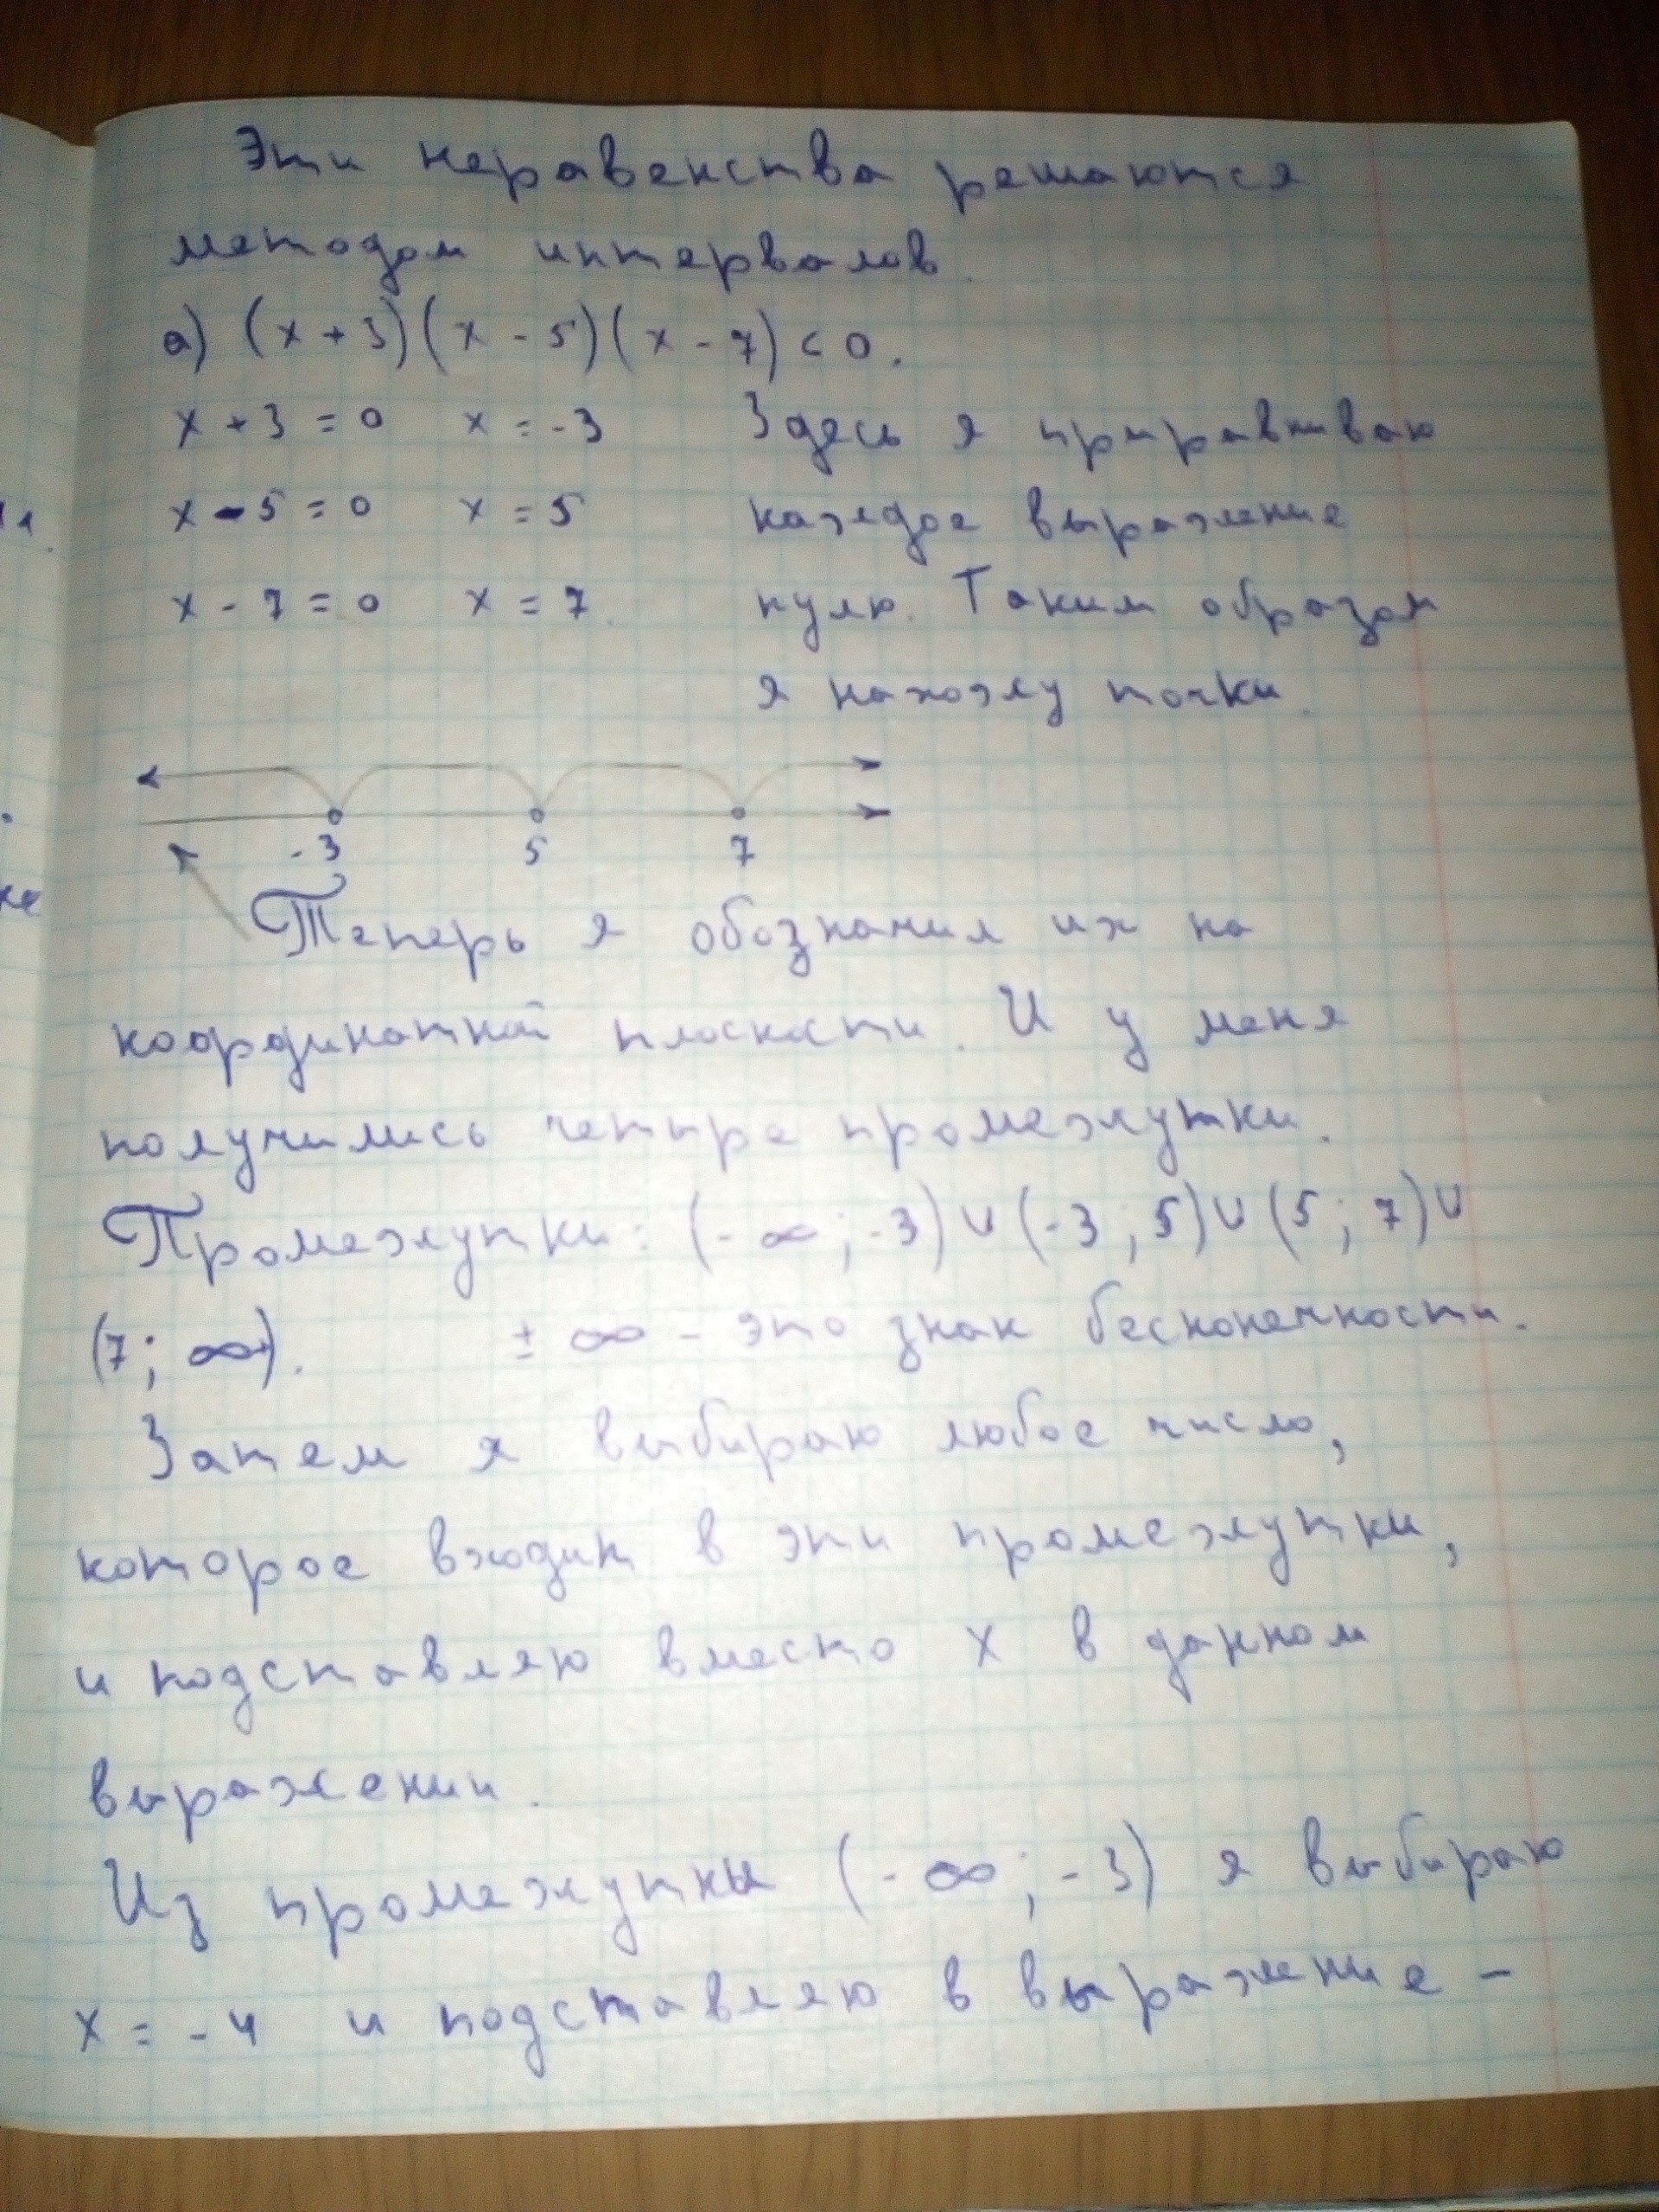 Эти неравенства решаются
методом интервалов.
а) (x + 3)(x - 5)(x - 7) < 0.
x + 3 = 0 x = -3 Здесь я приравниваю
x - 5 = 0 x = 5 каждое выражение
x - 7 = 0 x = 7. нулю. Таким образом
я нахожу точки.
-3 5 7
Теперь я обозначил их на
координатной плоскости. И у меня
получились четыре промежутки.
Промежутки: (-∞; -3) ∪ (-3; 5) ∪ (5; 7) ∪
(7; ∞). ± ∞ - это знак бесконечности.
Затем я выбираю любое число,
которое входит в эти промежутки,
и подставляю вместо x в данном
выражении.
Из промежутки (-∞; -3) я выбираю
x = -4 и подставляю в выражение -